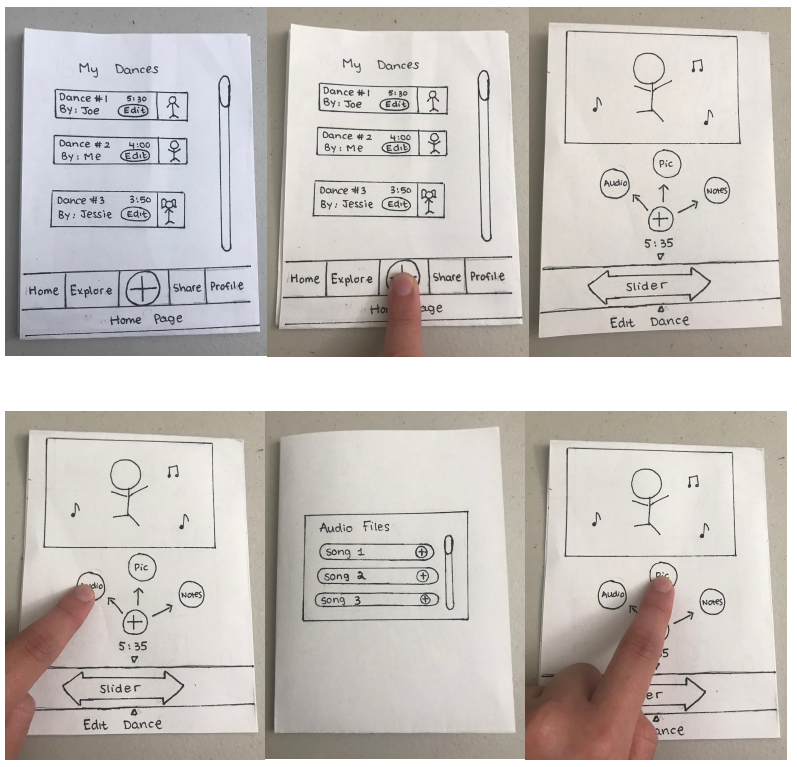 My Dances
Dance #1 5:30
By: Joe Edit
Dance #2 4:00
By: Me Edit
Dance #3 3:50
By: Jessie Edit
Home Explore Share Profile
Home Page
My Dances
Dance #1 5:30
By: Joe Edit
Dance #2 4:00
By: Me Edit
Dance #3 3:50
By: Jessie Edit
Home Explore Share Profile
Hom age
Pic
Audio Notes
5:35
Slider
Edit Dance
Pic
Audio Notes
5:35
Slider
Edit Dance
Audio Files
Song 1
Song 2
Song 3
Pic
Audio Notes
35
er
ance